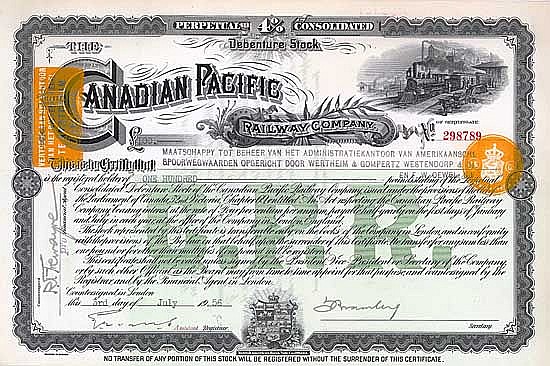 PERPETUAL 4% CONSOLIDATED
Debenture Stock
THE
CANADIAN PACIFIC
RAILWAY COMPANY.
Nº OF CERTIFICATE
298789
£100
MAATSCHAPPY TOT BEHEER VAN HET ADMINISTRATIEKANTOOR VAN AMERIKAANSCHE
SPOORWEGWAARDEN OPGERICHT DOOR WERTHEIM & GOMPERTZ WESTENDORP &
This is to Certify that
is the registered holder of ONE HUNDRED
Consolidated Debenture Stock of the Canadian Pacific Railway Company issued under the
the Parliament of Canada Victoria, Chapter respecting the Canadian Pacific Railway
Company bearing interest at the rate of Four per centum per annum, payable half yearly on the first days of January
and July, in each year at the Office of the Company in London, England.
The Stock represented by this certificate is transferable only on the books of the Company in London, and in conformity
with the provisions of the By-law in that behalf on the surrender of this certificate, no transfer of any sum less than
one pound or for other than multiples of that amount will be permitted.
This certificate shall not be valid until signed by the President, Vice President or Secretary of the Company,
or by such other Official as the Board may from time to time appoint for that purpose, and countersigned by the
Registrar, and by the Financial Agent in London.
Countersigned in London
this 3rd day of July 1956
Assistant Registrar
Secretary
NO TRANSFER OF ANY PORTION OF THIS STOCK WILL BE REGISTERED WITHOUT THE SURRENDER OF THIS CERTIFICATE.